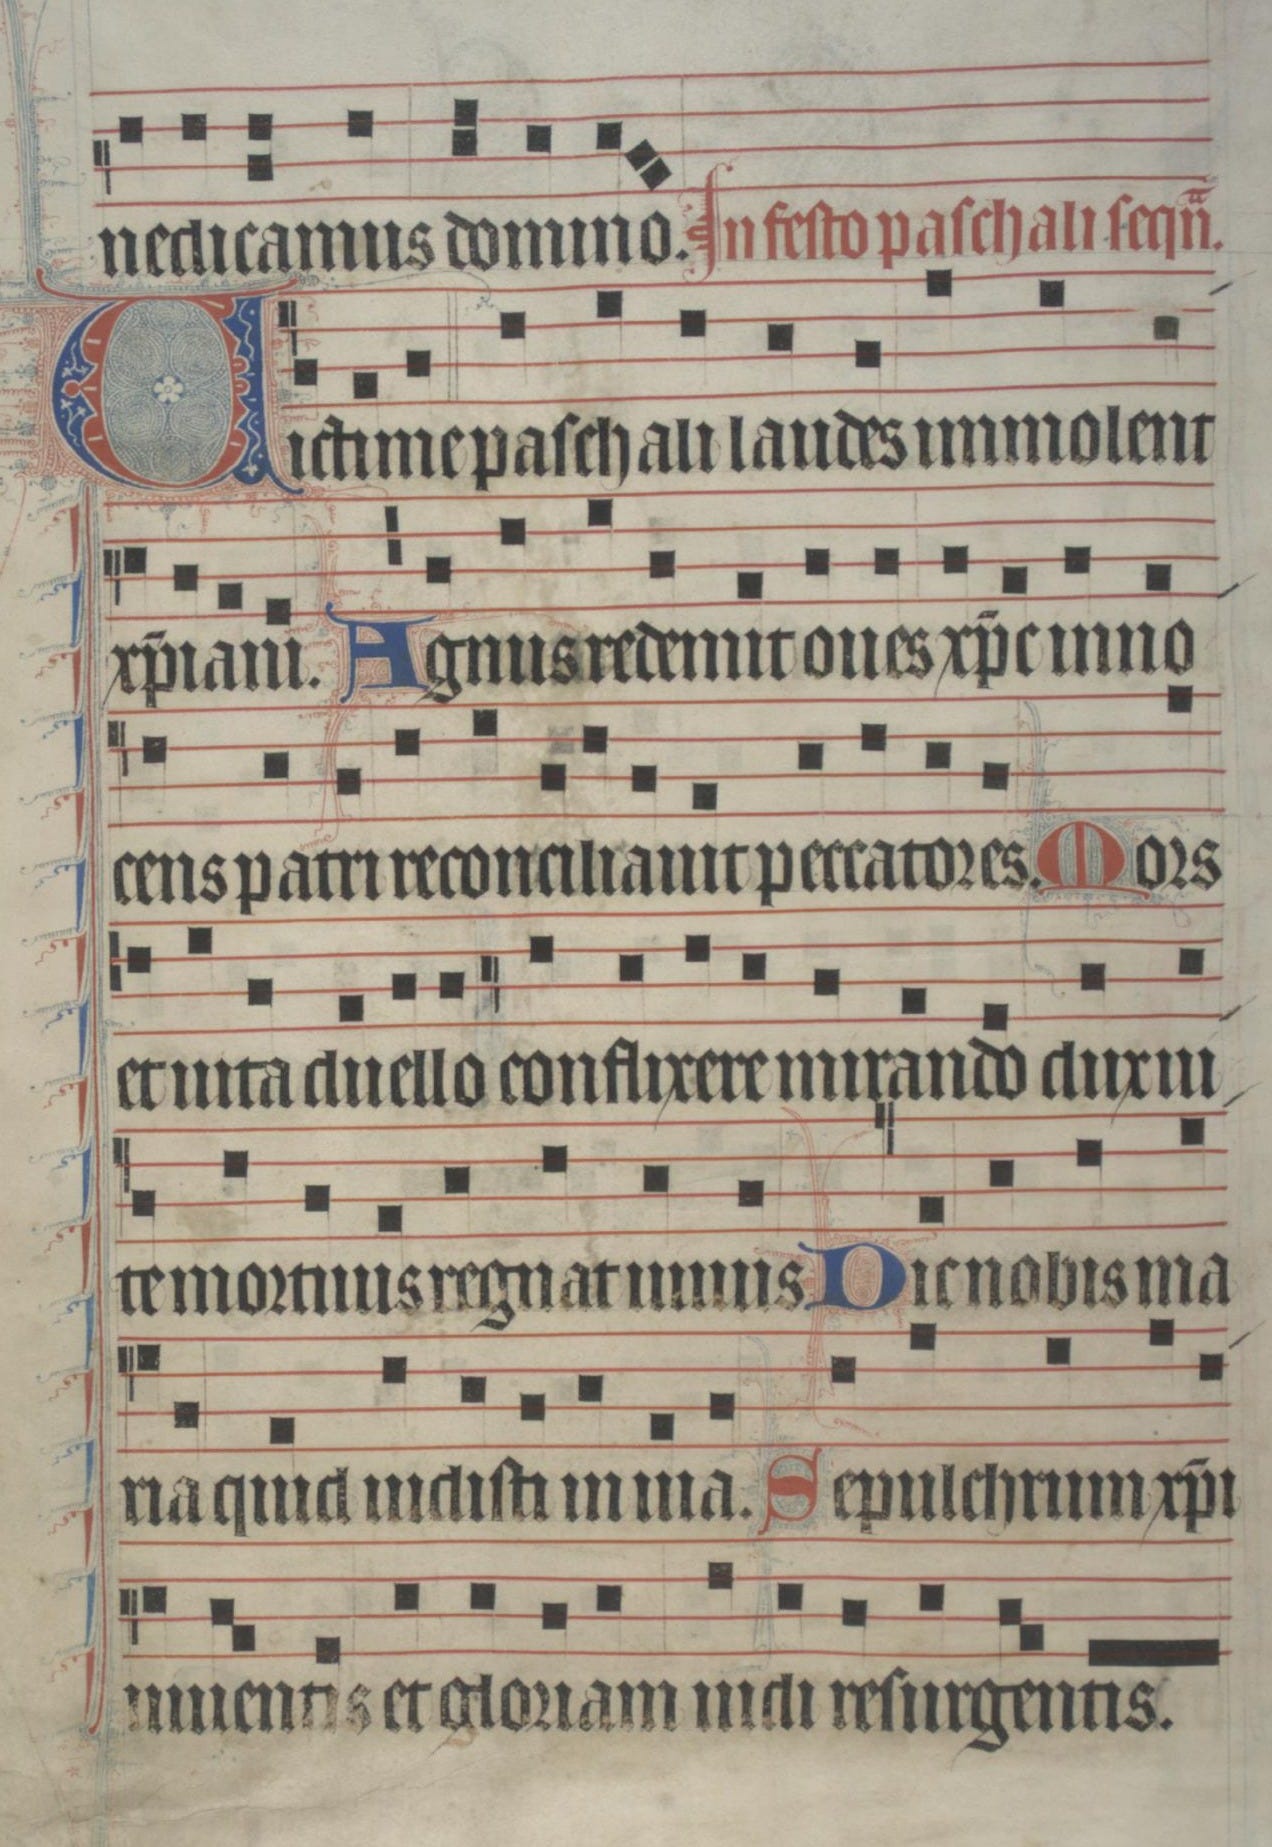 nedicamus domino. In festo paschali sequ̅a.
Uictime paschali laudes immolent
xp̅iani. Agnus redemit oues xp̅c inno
cens patri reconciliauit peccatores. Mors
et uita duello conflixere mirando dux ui
te mortuus regnat uiuus Dic nobis ma
ria quid uidisti in uia. Sepulchrum xp̅i
uiuentis et gloriam uidi resurgentis.